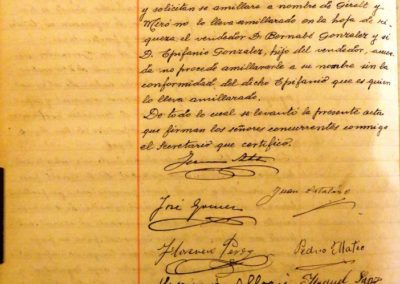 y solicitan se amillare a nombre de Giralt y
Miró no lo lleva amillarado en la hoja de ri-
queza el vendedor D. Bernabé Gonzalez y si
D. Epifanio Gonzalez, hijo del vendedor, acuer-
da no procede amillararse a su nombre sin la
conformidad del dicho Epifanio que es quien
lo lleva amillarado.
De todo lo cual se levantó la presente acta
que firman los señores concurrentes conmigo
el Secretario que certifico.
Juan
José Gomez
Florencio Pérez Pedro Mateo
Manuel